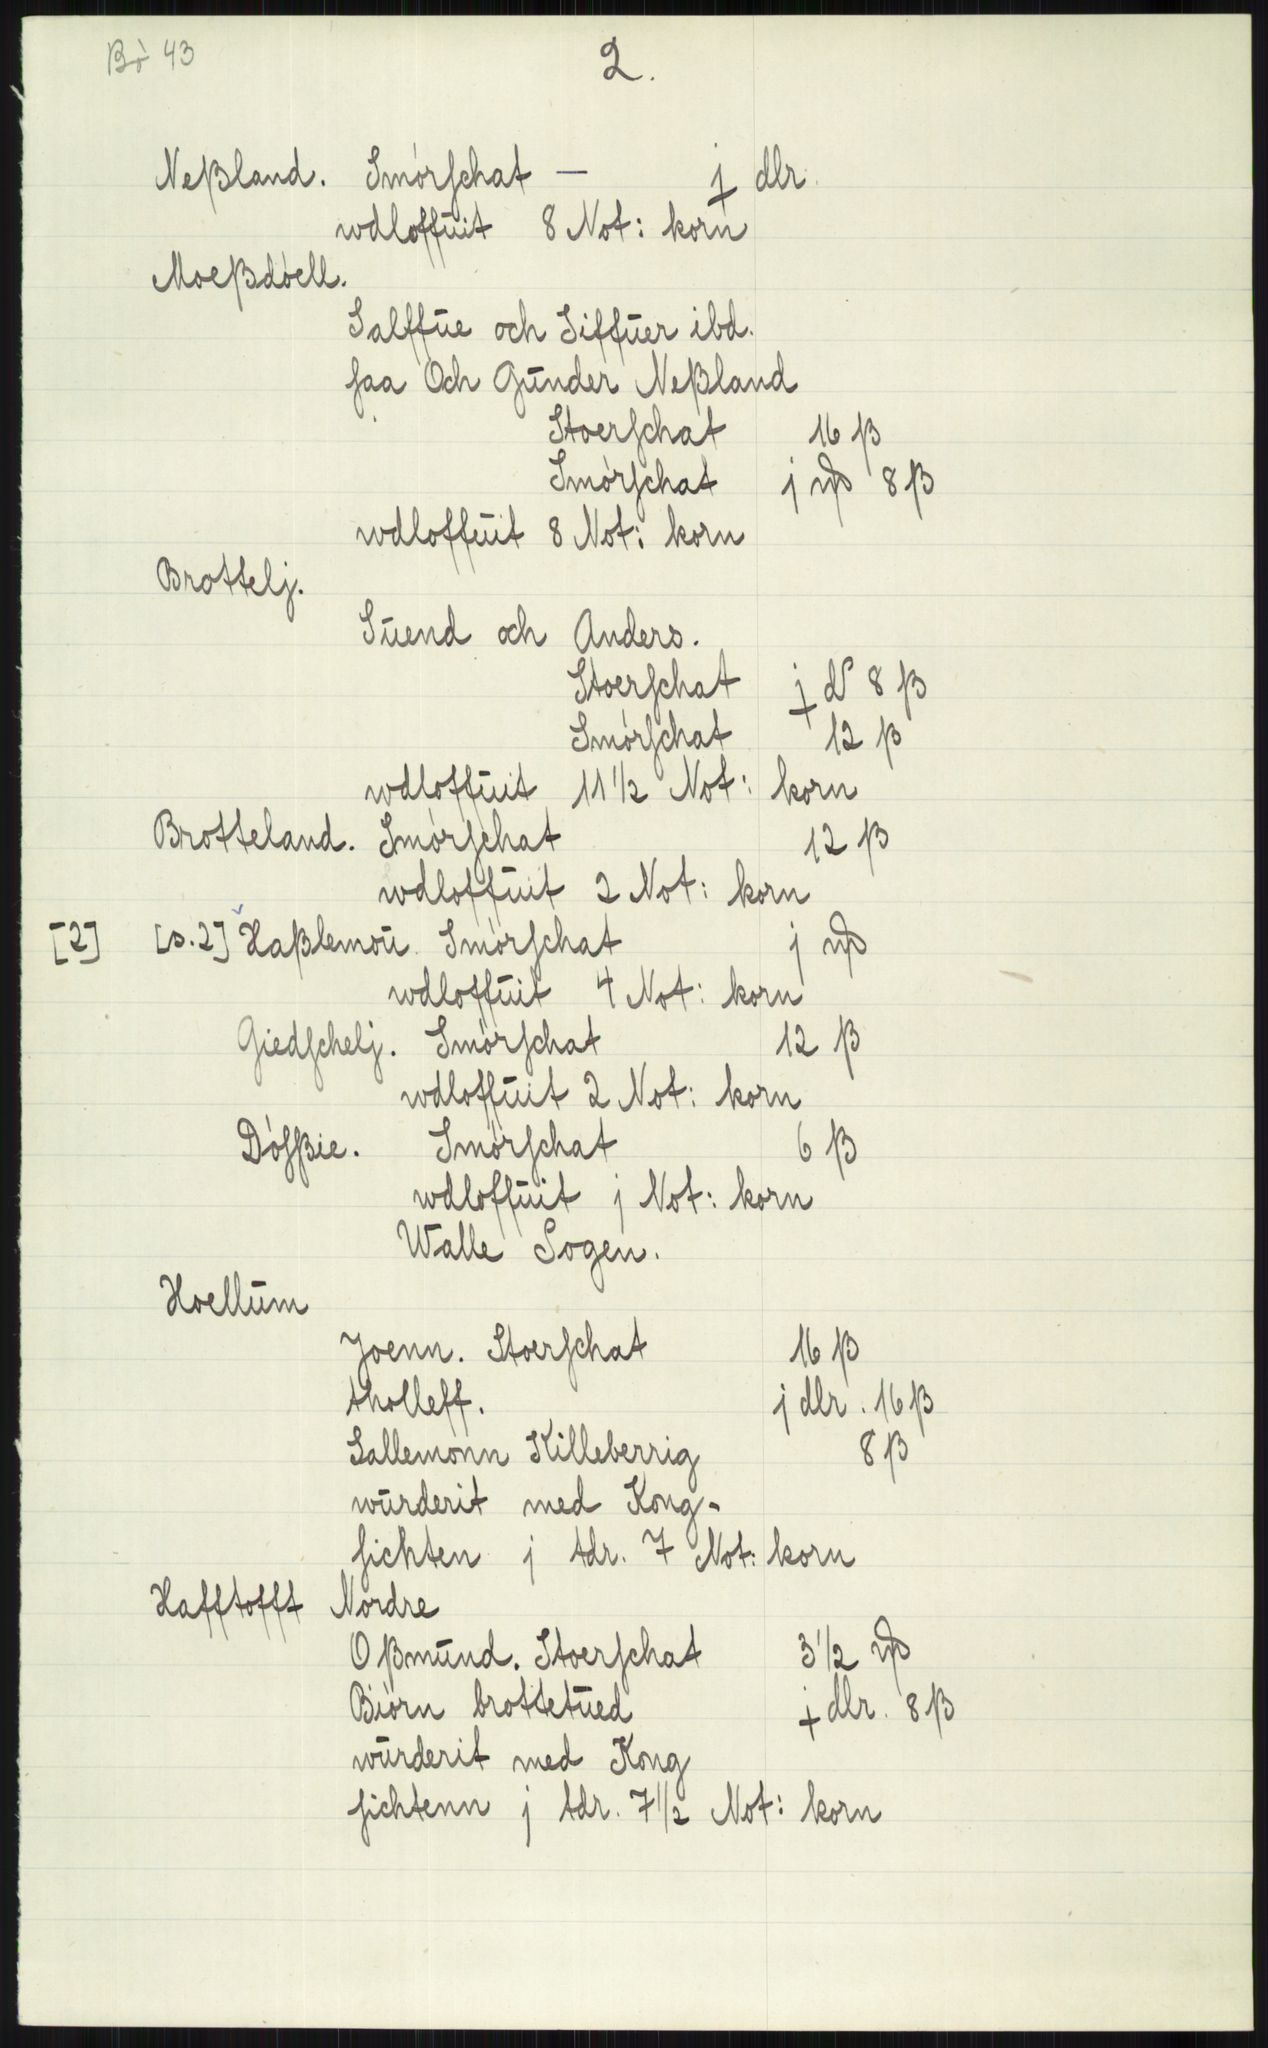 Bò 43
2.
Neßland. Smórschat — j dlr.
wdloffūit 8 Not: korn
Moeßdóell.
Salffūe och Siffūer ibd.
saa Och Gūnder Neßland
Stoerschat 16 ß
Smórschat j 8 ß
wdloffūit 8 Not: korn
Brottelj.
Sūend och Anders.
Stoerschat j d 8 ß
Smórschat 12 ß
wdloffūit 11 1/2 Not: korn
Brotteland. Smórschat 12 ß
wdloffūit 2 Not: korn
[2] [s.2] Haßlemoū Smórschat j
wdloffūit 4 Not: korn
Giedschelj. Smórschat 12 ß
wdloffūit 2 Not: korn
Dósßie. Smórschat 6 ß
wdloffūit j Not: korn
Walle Sogen.
Hoellūm
Joenn. Stoerschat 16 ß
tholleff. j dlr. 16 ß
Sallemonn Killeberrig 8 ß
wūrderit med Kong-
sichten j tdr. 7 Not: korn
Hafftofft Nordre
Oßmūnd. Stoerschat 3 1/2
Biórn brottetūed j dlr. 8 ß
wūrderit med Kong
sichtenn j tdr. 7 1/2 Not: korn